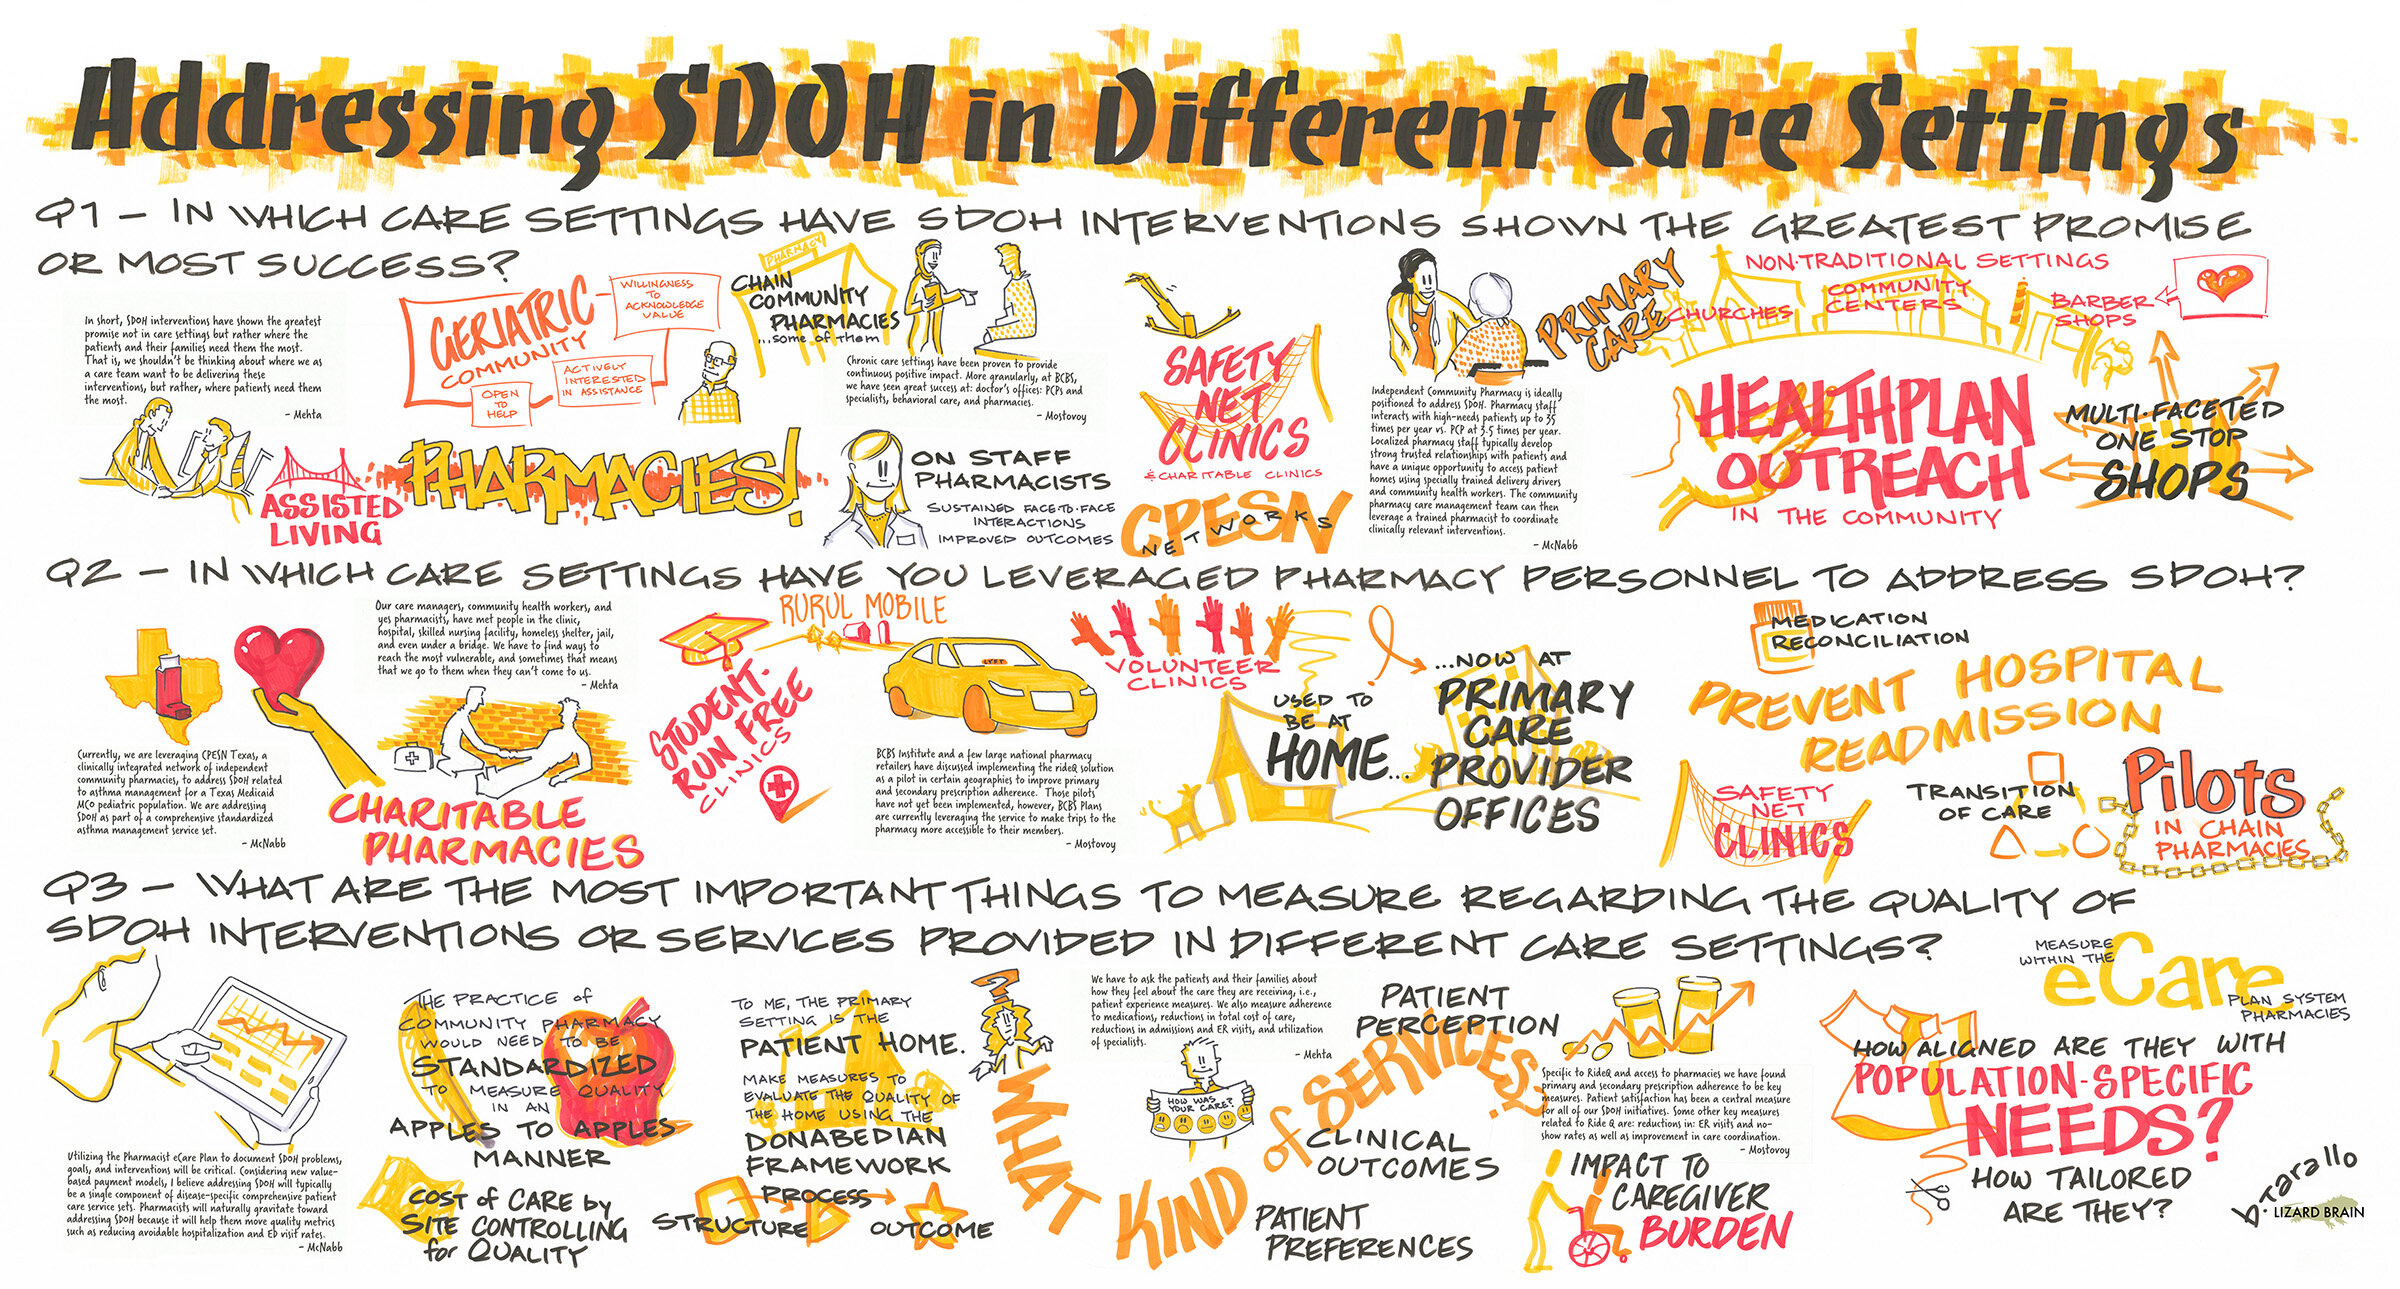 Addressing SDOH in Different Care Settings
Q1 – IN WHICH CARE SETTINGS HAVE SDOH INTERVENTIONS SHOWN THE GREATEST PROMISE
OR MOST SUCCESS?
In short, SDOH interventions have shown the greatest
promise not in care settings but rather where the
patients and their families need them the most.
That is, we shouldn't be thinking about where we as
a care team want to be delivering these
interventions, but rather, where patients need them
the most.
– Mehta
GERIATRIC
COMMUNITY
WILLINGNESS
TO
ACKNOWLEDGE
VALUE
ACTIVELY
INTERESTED
IN ASSISTANCE
OPEN
TO
HELP
ASSISTED
LIVING
PHARMACIES!
PHARMACY
CHAIN
COMMUNITY
PHARMACIES
...some of them
Chronic care settings have been proven to provide
continuous positive impact. More granularly, at BCBS,
we have seen great success at: doctor's offices: PCPs and
specialists, behavioral care, and pharmacies.
– Mostovoy
ON STAFF
PHARMACISTS
SUSTAINED FACE-TO-FACE
INTERACTIONS
IMPROVED OUTCOMES
SAFETY
NET
CLINICS
& CHARITABLE CLINICS
CPESN
NETWORKS
PRIMARY
CARE
Independent Community Pharmacy is ideally
positioned to address SDOH. Pharmacy staff
interacts with high-needs patients up to 35
times per year vs. PCP at 3.5 times per year.
Localized pharmacy staff typically develop
strong trusted relationships with patients and
have a unique opportunity to access patient
homes using specially trained delivery drivers
and community health workers. The community
pharmacy care management team can then
leverage a trained pharmacist to coordinate
clinically relevant interventions.
– McNabb
NON-TRADITIONAL SETTINGS
CHURCHES
COMMUNITY
CENTERS
BARBER
SHOPS
HEALTHPLAN
OUTREACH
IN THE COMMUNITY
MULTI-FACETED
ONE STOP
SHOPS
Q2 – IN WHICH CARE SETTINGS HAVE YOU LEVERAGED PHARMACY PERSONNEL TO ADDRESS SDOH?
Currently, we are leveraging CPESN Texas, a
clinically integrated network of independent
community pharmacies, to address SDOH related
to asthma management for a Texas Medicaid
MCO pediatric population. We are addressing
SDOH as part of a comprehensive standardized
asthma management service set.
– McNabb
Our care managers, community health workers, and
yes pharmacists, have met people in the clinic,
hospital, skilled nursing facility, homeless shelter, jail,
and even under a bridge. We have to find ways to
reach the most vulnerable, and sometimes that means
that we go to them when they can't come to us.
– Mehta
CHARITABLE
PHARMACIES
STUDENT-
RUN FREE
CLINICS
RURUL MOBILE
LYFT
BCBS Institute and a few large national pharmacy
retailers have discussed implementing the rideQ solution
as a pilot in certain geographies to improve primary
and secondary prescription adherence. Those pilots
have not yet been implemented, however, BCBS Plans
are currently leveraging the service to make trips to the
pharmacy more accessible to their members.
– Mostovoy
VOLUNTEER
CLINICS
USED TO
BE AT
HOME...
...NOW AT
PRIMARY
CARE
PROVIDER
OFFICES
MEDICATION
RECONCILIATION
PREVENT HOSPITAL
READMISSION
SAFETY
NET
CLINICS
TRANSITION
OF CARE
Pilots
IN CHAIN
PHARMACIES
Q3 – WHAT ARE THE MOST IMPORTANT THINGS TO MEASURE REGARDING THE QUALITY OF
SDOH INTERVENTIONS OR SERVICES PROVIDED IN DIFFERENT CARE SETTINGS?
Utilizing the Pharmacist eCare Plan to document SDOH problems,
goals, and interventions will be critical. Considering new value-
based payment models, I believe addressing SDOH will typically
be a single component of disease-specific comprehensive patient
care service sets. Pharmacists will naturally gravitate toward
addressing SDOH because it will help them move quality metrics
such as reducing avoidable hospitalization and ED visit rates.
– McNabb
THE PRACTICE of
COMMUNITY PHARMACY
WOULD NEED TO BE
STANDARDIZED
TO MEASURE QUALITY
IN AN
APPLES TO APPLES
MANNER
COST of CARE by
SITE CONTROLLING
for QUALITY
TO ME, THE PRIMARY
SETTING IS THE
PATIENT HOME.
MAKE MEASURES TO
EVALUATE THE QUALITY OF
THE HOME USING THE
DONABEDIAN
FRAMEWORK
STRUCTURE
PROCESS
OUTCOME
?
WHAT
KIND
of
SERVICES?
We have to ask the patients and their families about
how they feel about the care they are receiving, i.e.,
patient experience measures. We also measure adherence
to medications, reductions in total cost of care,
reductions in admissions and ER visits, and utilization
of specialists.
– Mehta
HOW WAS
YOUR CARE?
PATIENT
PERCEPTION
CLINICAL
OUTCOMES
PATIENT
PREFERENCES
Specific to RideQ and access to pharmacies we have found
primary and secondary prescription adherence to be key
measures. Patient satisfaction has been a central measure
for all of our SDOH initiatives. Some other key measures
related to Ride Q are: reductions in: ER visits and no-
show rates as well as improvement in care coordination.
– Mostovoy
IMPACT TO
CAREGIVER
BURDEN
MEASURE
WITHIN THE
eCare
PLAN SYSTEM
PHARMACIES
HOW ALIGNED ARE THEY WITH
POPULATION-SPECIFIC
NEEDS?
HOW TAILORED
ARE THEY?
b.tarallo
LIZARD BRAIN